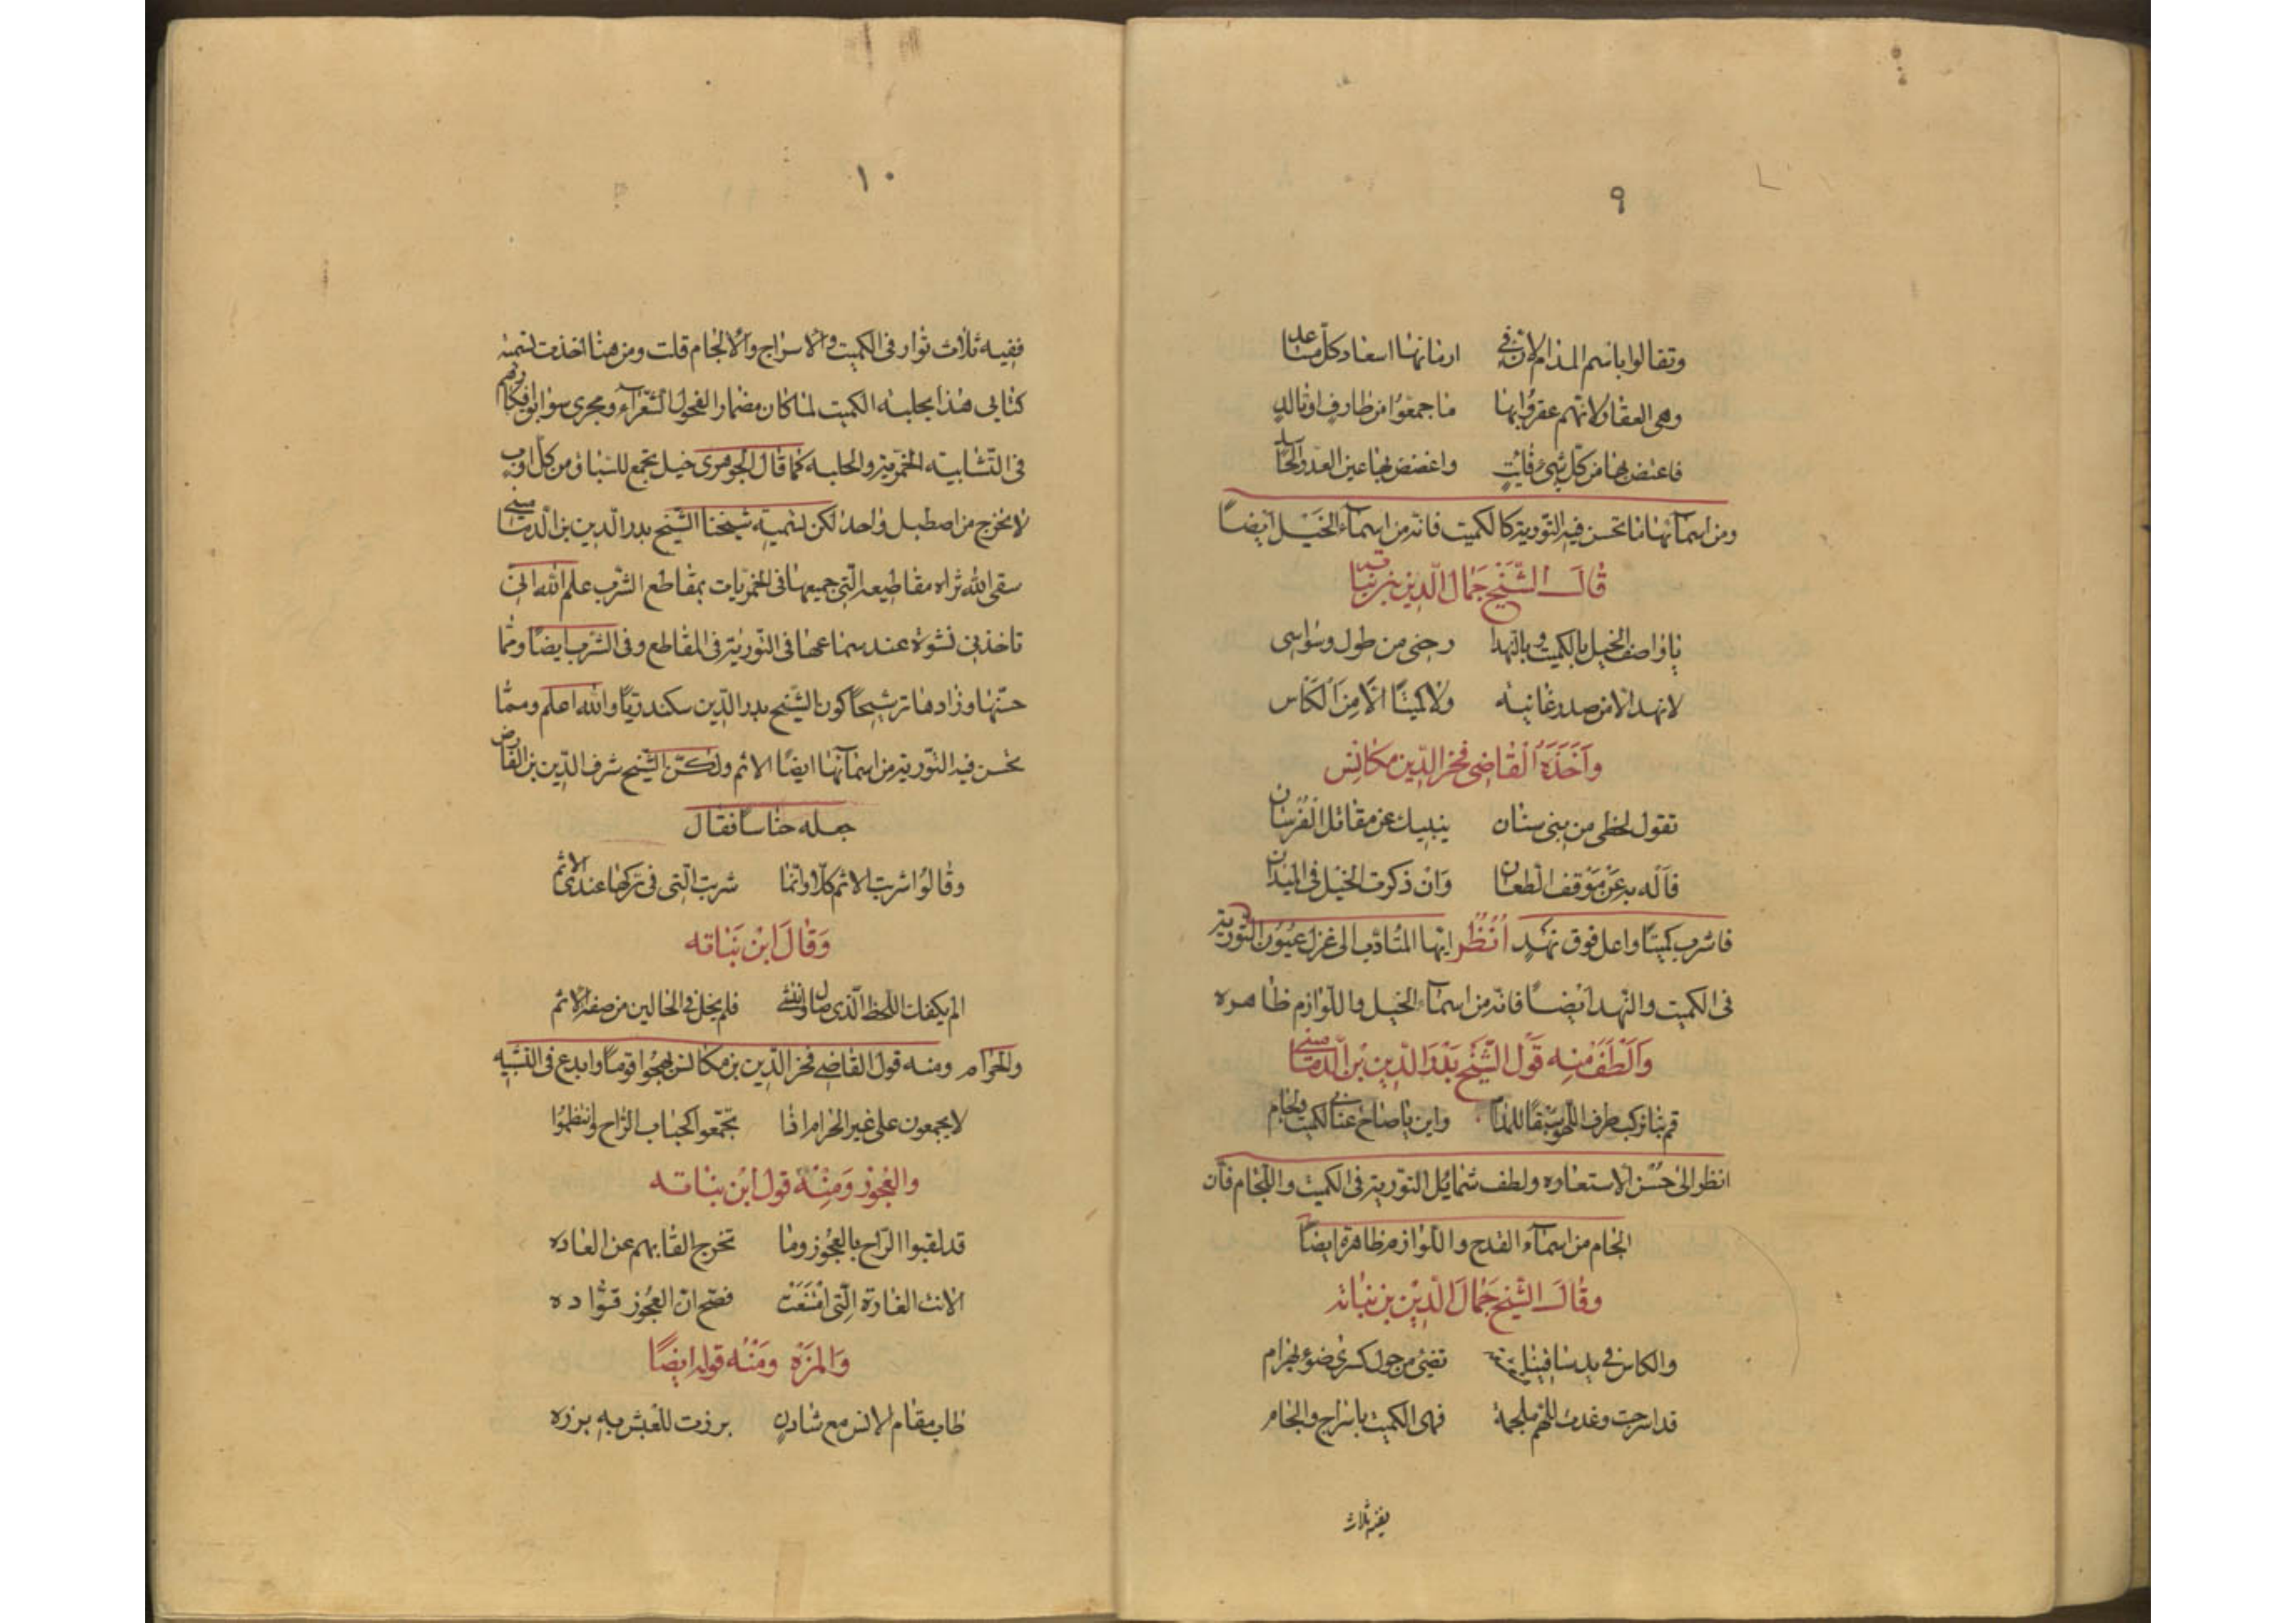 ٩
وتفالوا باسم المدام لان في ازمانها اسعاد كل مساعد
وهي العقار لانهم عقروا بها ما جمعوا من طارف او تالد
فاعتض بها من كل شيء فايت واغضض بها عين العدو الحاسد
ومن اسمآئها ما تحسن فيه التورية كالكميت فانه من اسمآء الخيل ايضاً
قال الشيخ جمال الدين بن نباته
يا واصف الخيل بالكميت وبالنهد ارحني من طول وسواسي
لا نهد الا من صدر غانيه ولا كميتا الا من الكاس
وَاَخَذَهُ القاضي فخر الدين مكانس
تقول لحظي من بني سنان ينبيك عن مقاتل الفرسان
فآله به عن موقف الطعان وان ذكرت الخيل في الميدان
فاشرب كميتًا واعل فوق نهدٍ اُنْظُر ايها المتادب الى غزل عيون التورية
في الكميت والنهد ايضاً فانه من اسمآء الخيل واللوازم ظاهره
وَاَلْطَفَ منه قول الشيخ بدر الدين بن الدمامينى
قم بنا نركب طرف اللهو سبقًا للمدام واثن يا صاح عنانى لكميت ولجام
انظر الى حسن الاستعاره ولطف شمائل التورية في الكميت واللجام فان
الجام من اسمآء القدح واللوازم ظاهرة ايضاً
وقال الشيخ جمال الدين بن نباته
والكاس في يد ساقينا تضئ من حول كسرى ضوء بهرام
قد اسرجت وغدت للهم ملجمة فهى الكميت باسراج والجام
ففيه ثلاث
١٠
ففيه ثلاث توار في الكميت والاسراج والالجام قلت ومن هنا اخذت تسمية
كتابي هذا بحلبة الكميت لما كان مضمار الفحول الشعرآء ومجرى سوابق افكارهم
في التشابيه الخمرية والحلبه كما قال الجوهرى خيل تجمع للسباق من كل اوب
لا تخرج من اصطبل واحد لكن تسمية شيخنا الشيخ بدر الدين بن الدمامينى
سقى الله ثراه مقاطيعه التى جميعها في الخمريات بمقاطع الشرب علم الله انى
تاخذني نشوة عند سماعها في التورية في المقاطع وفي الشرب ايضًا ومما
حسنها وزادها ترشيحًا كون الشيخ بدر الدين سكندريًا والله اعلم ومما
تحسن فيه التورية من اسمآئها ايضًا الاثم ولكن الشيخ شرف الدين بن الفارض
جعله جناسًا فقال
وقالوا شربت الاثم كلا وانما شربت التى في تركها عندى الاثم
وَقَالَ ابن نباته
الم يكفك اللحظ الذى صال وانتشى فلم يخل في الحالين من صفة الاثم
والحرام ومنه قول القاضي فخر الدين بن مكانس يهجوا قومًا وابدع في التشبيه
لا يجمعون على غير الحرام اذا تجمعوا كحباب الراح وانتظموا
والعجوز وَمِنْهُ قول ابن نباته
قد لقبوا الراح بالعجوز وما تخرج القابهم عن العاده
الانت الغادة التى امتنعت فصح ان العجوز قواده
وَالمزة ومنه قوله ايضاً
طاب مقام الانس مع شادن برزت للعيش به برزه